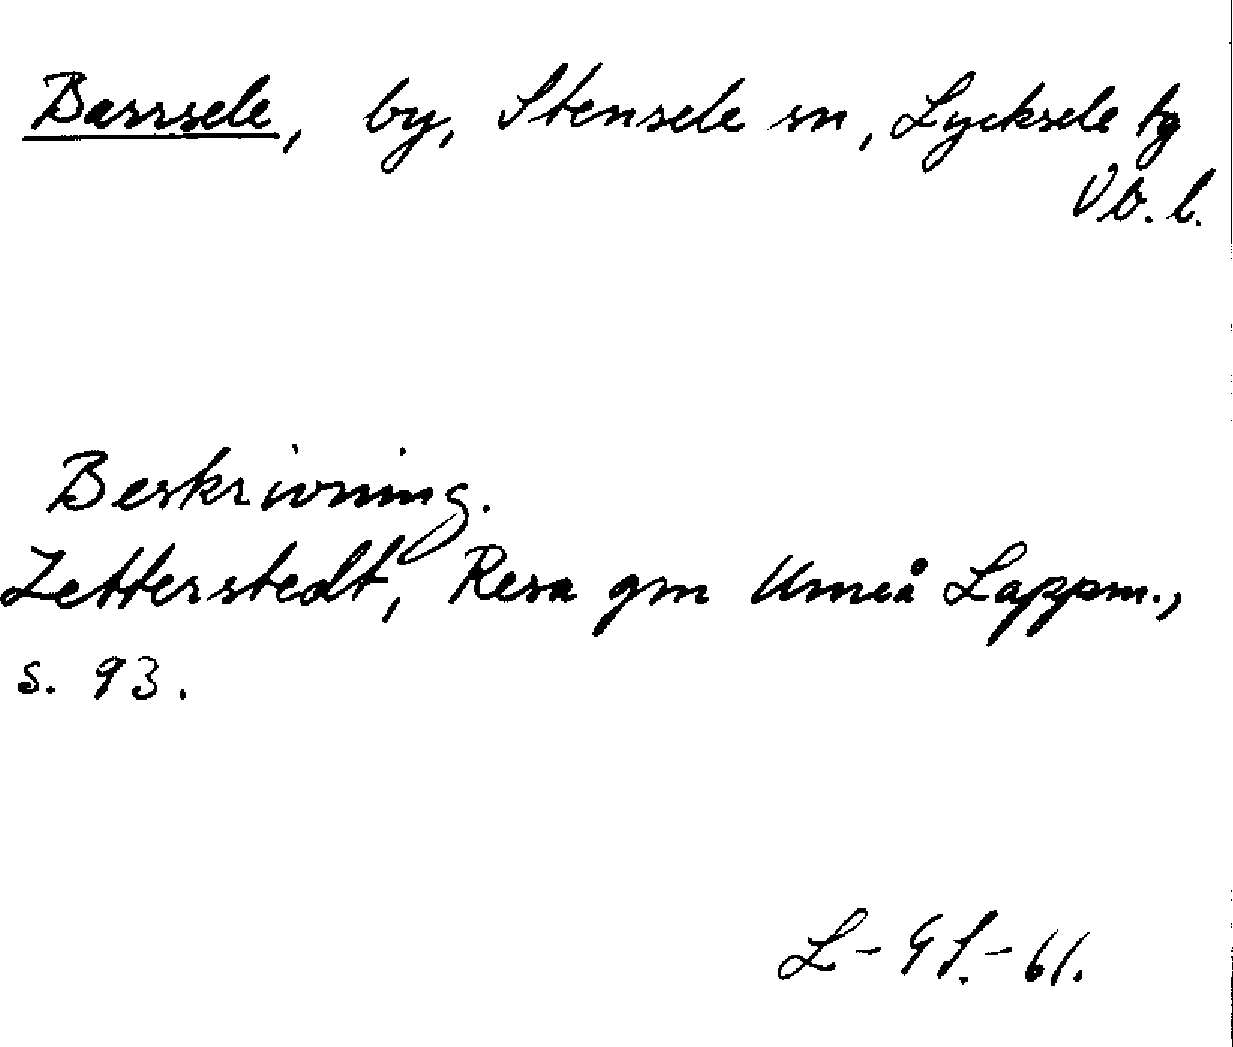 Barrsele, by, Stensele sn, Lycksele tg
Vb. l.
Beskrivning.
Zetterstedt, Resa gm Umeå Lappm.,
s. 93.
L-GS.-61.